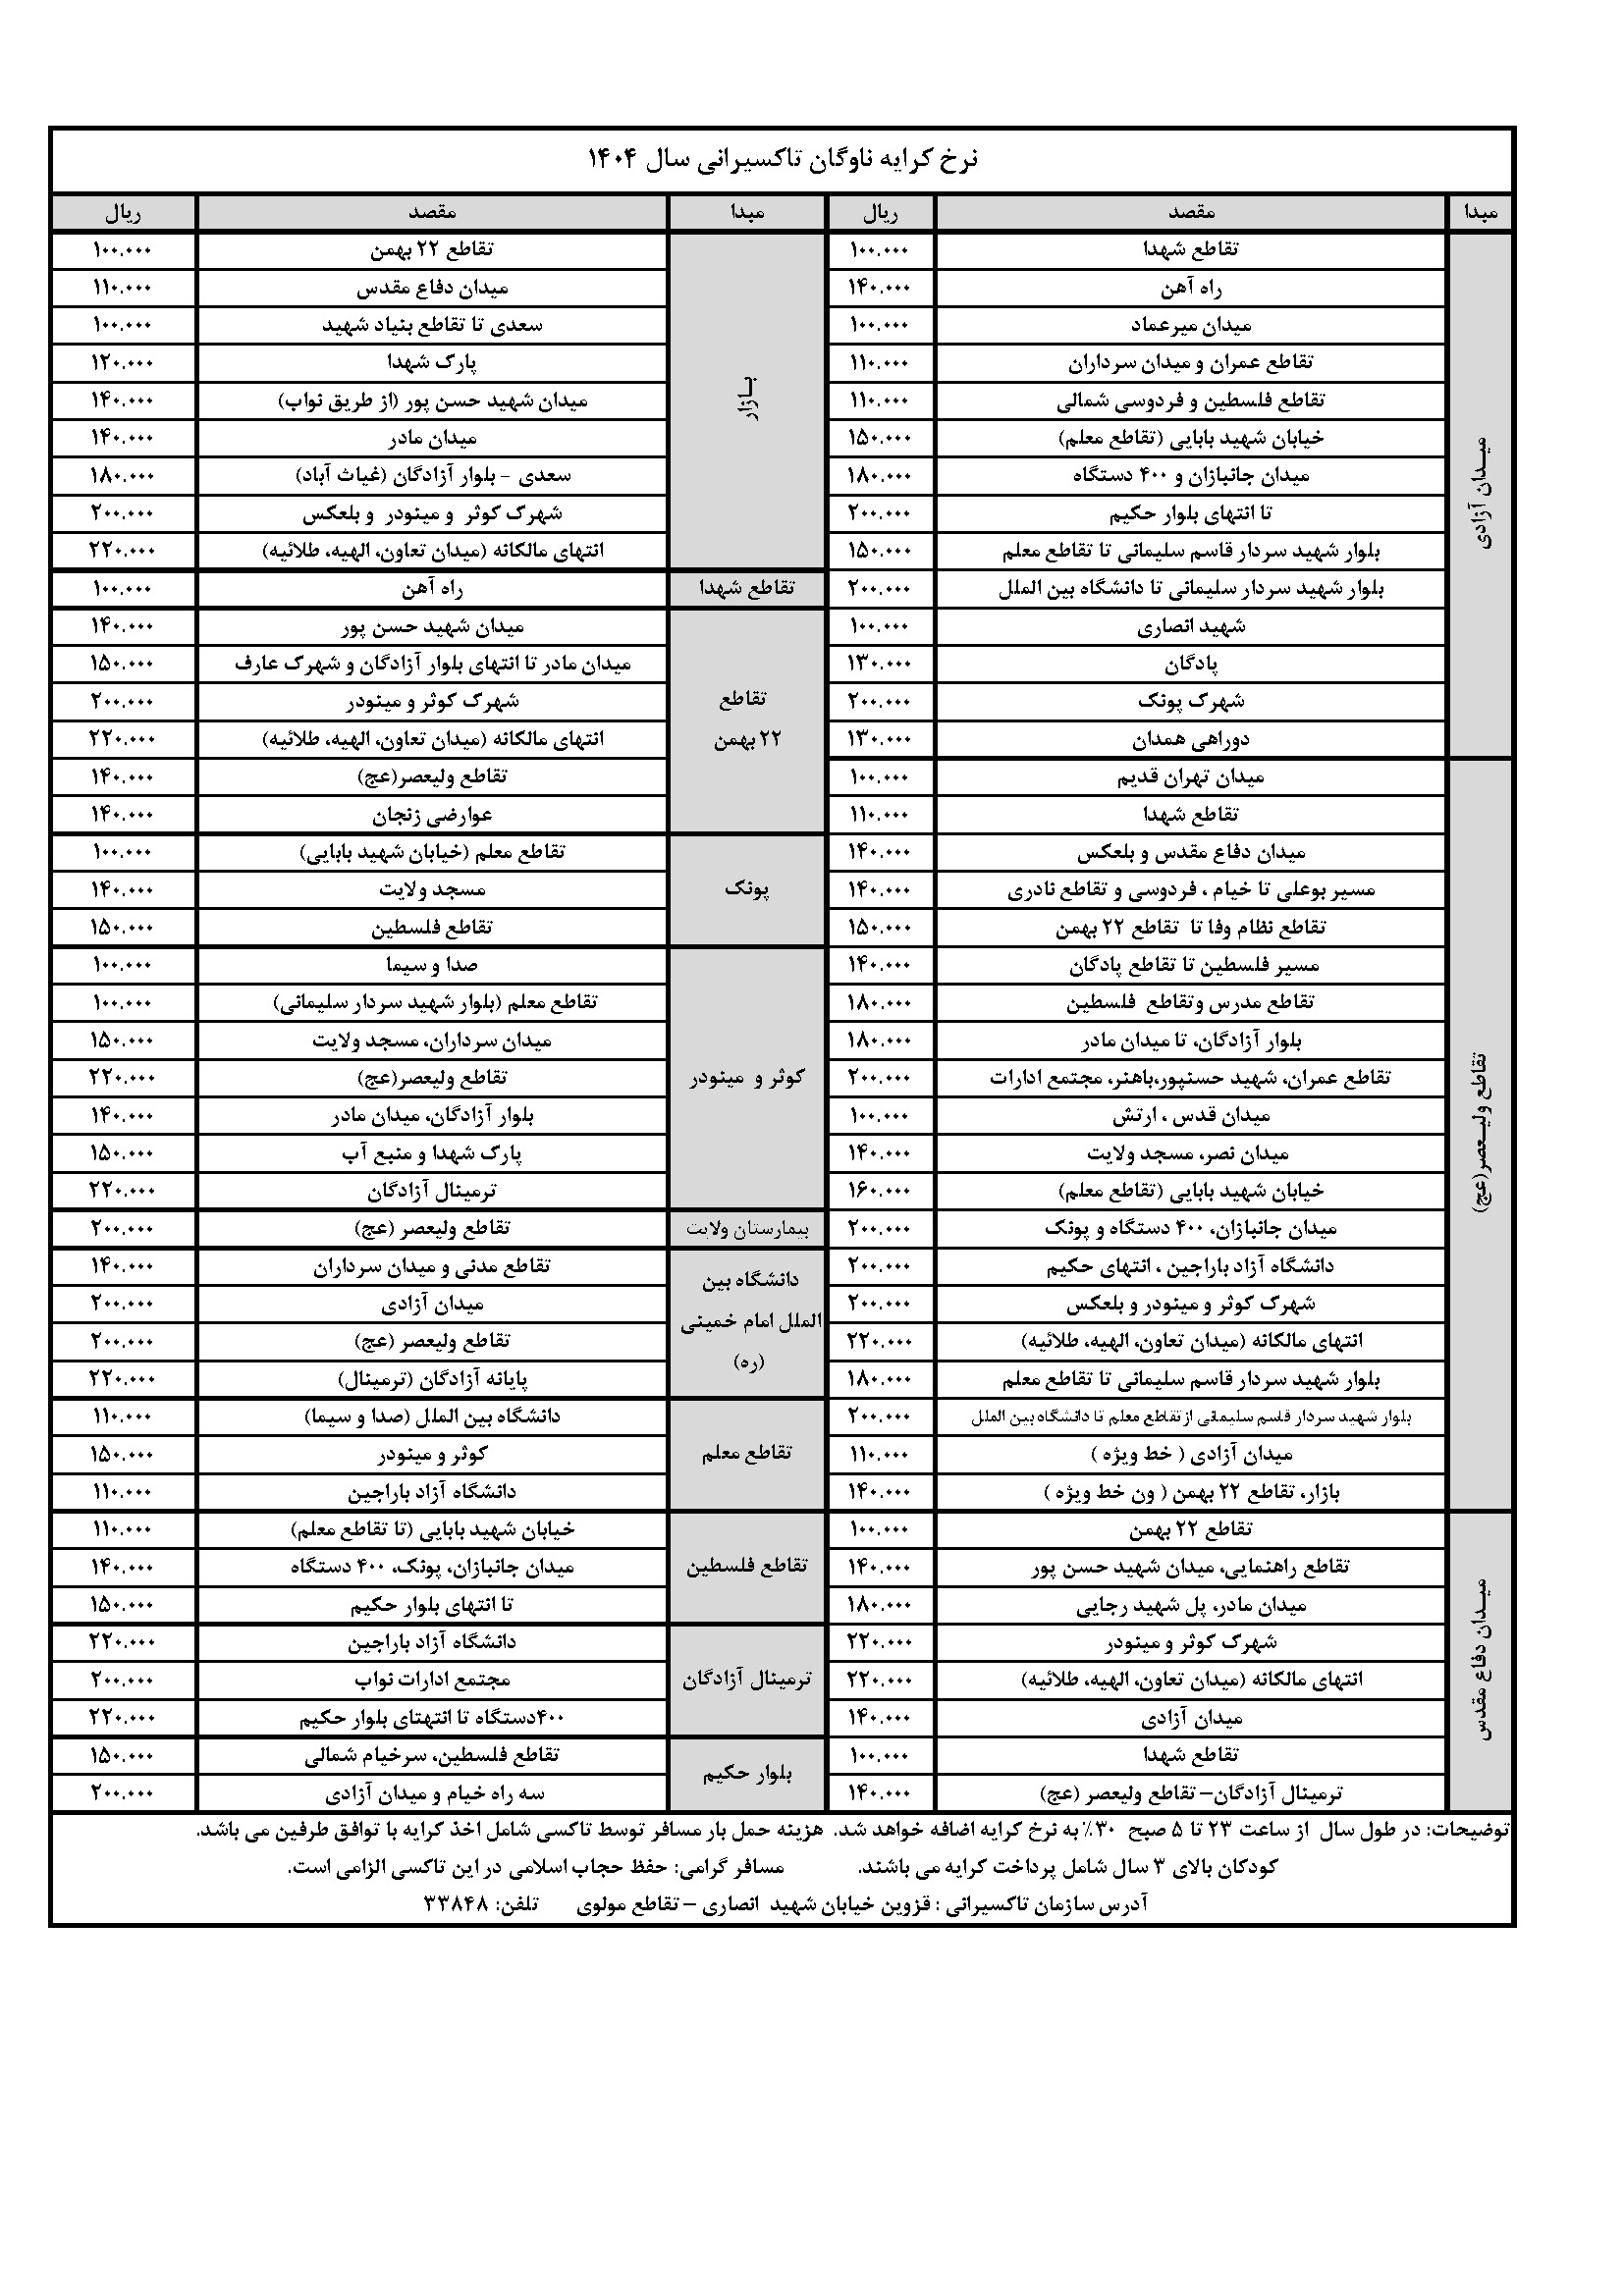 نرخ کرایه ناوگان تاکسیرانی سال ۱۴۰۴
مبدا مقصد ریال
میدان آزادی
تقاطع شهدا ۱۰۰.۰۰۰
راه آهن ۱۴۰.۰۰۰
میدان میرعماد ۱۰۰.۰۰۰
تقاطع عمران و میدان سرداران ۱۱۰.۰۰۰
تقاطع فلسطین و فردوسی شمالی ۱۱۰.۰۰۰
خیابان شهید بابایی (تقاطع معلم) ۱۵۰.۰۰۰
میدان جانبازان و ۴۰۰ دستگاه ۱۸۰.۰۰۰
تا انتهای بلوار حکیم ۲۰۰.۰۰۰
بلوار شهید سردار قاسم سلیمانی تا تقاطع معلم ۱۵۰.۰۰۰
بلوار شهید سردار سلیمانی تا دانشگاه بین الملل ۲۰۰.۰۰۰
شهید انصاری ۱۰۰.۰۰۰
پادگان ۱۳۰.۰۰۰
شهرک پونک ۲۰۰.۰۰۰
دوراهی همدان ۱۳۰.۰۰۰
تقاطع ولیعصر(عج)
میدان تهران قدیم ۱۰۰.۰۰۰
تقاطع شهدا ۱۱۰.۰۰۰
میدان دفاع مقدس و بلعکس ۱۴۰.۰۰۰
مسیر بوعلی تا خیام ، فردوسی و تقاطع نادری ۱۴۰.۰۰۰
تقاطع نظام وفا تا تقاطع ۲۲ بهمن ۱۵۰.۰۰۰
مسیر فلسطین تا تقاطع پادگان ۱۴۰.۰۰۰
تقاطع مدرس وتقاطع فلسطین ۱۸۰.۰۰۰
بلوار آزادگان، تا میدان مادر ۱۸۰.۰۰۰
تقاطع عمران، شهید حسنپور،باهنر، مجتمع ادارات ۲۰۰.۰۰۰
میدان قدس ، ارتش ۱۰۰.۰۰۰
میدان نصر، مسجد ولایت ۱۴۰.۰۰۰
خیابان شهید بابایی (تقاطع معلم) ۱۶۰.۰۰۰
میدان جانبازان، ۴۰۰ دستگاه و پونک ۲۰۰.۰۰۰
دانشگاه آزاد باراجین ، انتهای حکیم ۲۰۰.۰۰۰
شهرک کوثر و مینودر و بلعکس ۲۰۰.۰۰۰
انتهای مالکانه (میدان تعاون، الهیه، طلائیه) ۲۲۰.۰۰۰
بلوار شهید سردار قاسم سلیمانی تا تقاطع معلم ۱۸۰.۰۰۰
بلوار شهید سردار قاسم سلیمانی ازتقاطع معلم تا دانشگاه بین الملل ۲۰۰.۰۰۰
میدان آزادی ( خط ویژه ) ۱۱۰.۰۰۰
بازار، تقاطع ۲۲ بهمن ( ون خط ویژه ) ۱۴۰.۰۰۰
میدان دفاع مقدس
تقاطع ۲۲ بهمن ۱۰۰.۰۰۰
تقاطع راهنمایی، میدان شهید حسن پور ۱۴۰.۰۰۰
میدان مادر، پل شهید رجایی ۱۸۰.۰۰۰
شهرک کوثر و مینودر ۲۲۰.۰۰۰
انتهای مالکانه (میدان تعاون، الهیه، طلائیه) ۲۲۰.۰۰۰
میدان آزادی ۱۴۰.۰۰۰
تقاطع شهدا ۱۰۰.۰۰۰
ترمینال آزادگان– تقاطع ولیعصر (عج) ۱۴۰.۰۰۰
مبدا مقصد ریال
بازار
تقاطع ۲۲ بهمن ۱۰۰.۰۰۰
میدان دفاع مقدس ۱۱۰.۰۰۰
سعدی تا تقاطع بنیاد شهید ۱۰۰.۰۰۰
پارک شهدا ۱۲۰.۰۰۰
میدان شهید حسن پور (از طریق نواب) ۱۴۰.۰۰۰
میدان مادر ۱۴۰.۰۰۰
سعدی - بلوار آزادگان (غیاث آباد) ۱۸۰.۰۰۰
شهرک کوثر و مینودر و بلعکس ۲۰۰.۰۰۰
انتهای مالکانه (میدان تعاون، الهیه، طلائیه) ۲۲۰.۰۰۰
تقاطع شهدا راه آهن ۱۰۰.۰۰۰
تقاطع
۲۲ بهمن
میدان شهید حسن پور ۱۴۰.۰۰۰
میدان مادر تا انتهای بلوار آزادگان و شهرک عارف ۱۵۰.۰۰۰
شهرک کوثر و مینودر ۲۰۰.۰۰۰
انتهای مالکانه (میدان تعاون، الهیه، طلائیه) ۲۲۰.۰۰۰
تقاطع ولیعصر(عج) ۱۴۰.۰۰۰
عوارضی زنجان ۱۴۰.۰۰۰
پونک
تقاطع معلم (خیابان شهید بابایی) ۱۰۰.۰۰۰
مسجد ولایت ۱۴۰.۰۰۰
تقاطع فلسطین ۱۵۰.۰۰۰
کوثر و مینودر
صدا و سیما ۱۰۰.۰۰۰
تقاطع معلم (بلوار شهید سردار سلیمانی) ۱۰۰.۰۰۰
میدان سرداران، مسجد ولایت ۱۵۰.۰۰۰
تقاطع ولیعصر(عج) ۲۲۰.۰۰۰
بلوار آزادگان، میدان مادر ۱۴۰.۰۰۰
پارک شهدا و منبع آب ۱۵۰.۰۰۰
ترمینال آزادگان ۲۲۰.۰۰۰
بیمارستان ولایت تقاطع ولیعصر (عج) ۲۰۰.۰۰۰
دانشگاه بین
الملل امام خمینی
(ره)
تقاطع مدنی و میدان سرداران ۱۴۰.۰۰۰
میدان آزادی ۲۰۰.۰۰۰
تقاطع ولیعصر (عج) ۲۰۰.۰۰۰
پایانه آزادگان (ترمینال) ۲۲۰.۰۰۰
تقاطع معلم
دانشگاه بین الملل (صدا و سیما) ۱۱۰.۰۰۰
کوثر و مینودر ۱۵۰.۰۰۰
دانشگاه آزاد باراجین ۱۱۰.۰۰۰
تقاطع فلسطین
خیابان شهید بابایی (تا تقاطع معلم) ۱۱۰.۰۰۰
میدان جانبازان، پونک، ۴۰۰ دستگاه ۱۴۰.۰۰۰
تا انتهای بلوار حکیم ۱۵۰.۰۰۰
ترمینال آزادگان
دانشگاه آزاد باراجین ۲۲۰.۰۰۰
مجتمع ادارات نواب ۲۰۰.۰۰۰
۴۰۰دستگاه تا انتهتای بلوار حکیم ۲۲۰.۰۰۰
بلوار حکیم
تقاطع فلسطین، سرخیام شمالی ۱۵۰.۰۰۰
سه راه خیام و میدان آزادی ۲۰۰.۰۰۰
توضیحات: در طول سال از ساعت ۲۳ تا ۵ صبح ۳۰٪ به نرخ کرایه اضافه خواهد شد. هزینه حمل بار مسافر توسط تاکسی شامل اخذ کرایه با توافق طرفین می باشد.
کودکان بالای ۳ سال شامل پرداخت کرایه می باشند. مسافر گرامی: حفظ حجاب اسلامی در این تاکسی الزامی است.
آدرس سازمان تاکسیرانی : قزوین خیابان شهید انصاری – تقاطع مولوی تلفن: ۳۳۸۴۸